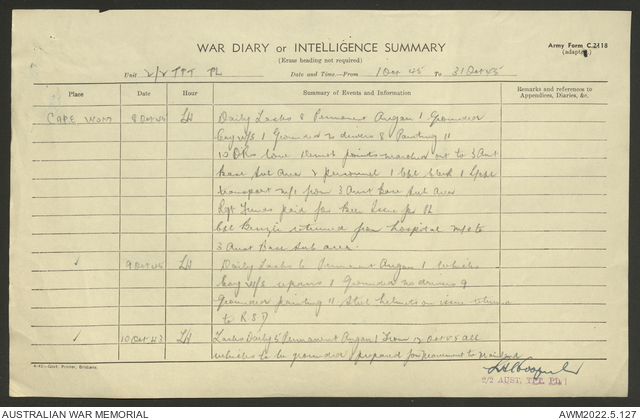 WAR DIARY or INTELLIGENCE SUMMARY
(Erase heading not required)
Army Form C.2118
(adapted)
Unit 2/2 TPT PL Date and Time.—From 1 Oct 45 To 31 Oct 45
Place Date Hour Summary of Events and Information Remarks and references to Appendices, Diaries, &c.
CAPE WOM 8 Oct 45 LH Daily Tasks 8 Permanent Angau 1 Grounded
Coy w/s 1 Grounded no drivers 8 Painting 11
10 ORs points marched out to 3 Aust
Base Sub Area personnel 1 Cpl Clerk 1
transport from 3 Aust Base Sub Area
Rgt Funds paid for Beer Issue
Cpl returned from hospital to
3 Aust Base Sub area
9 Oct 45 LH Daily Tasks 6 Permanent Angau 1 Vehicles
Coy w/s repairs 1 Grounded no drivers 9
Grounded painting 11 Steel helmets on issue
to R.S.D
10 Oct 45 LH Tasks Daily 5 Permanent Angau 1 From 12 Oct 45 all
vehicles to be grounded prepared for movement to
4-43—Govt. Printer, Brisbane.
2/2 AUST. TPT. PL
AUSTRALIAN WAR MEMORIAL AWM2022.5.127